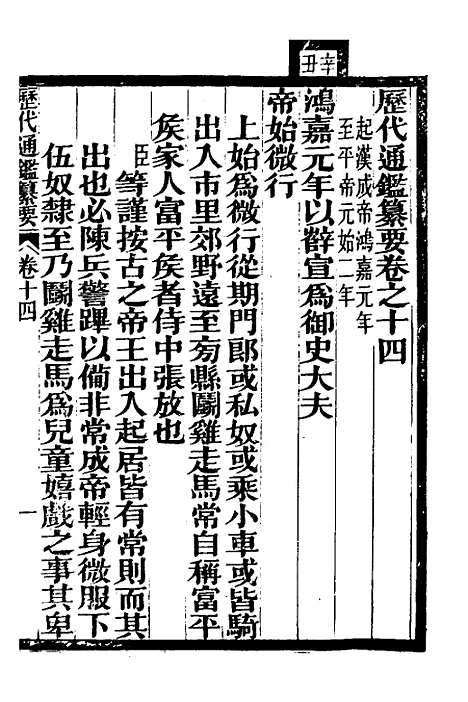 歷代通鑑纂要卷之十四
起漢成帝鴻嘉元年
至平帝元始二年
辛丑
鴻嘉元年以薛宣爲御史大夫
帝始微行
上始爲微行從期門郎或私奴或乘小車或皆騎
出入市里郊野遠至旁縣鬭雞走馬常自稱富平
矦家人富平矦者侍中張放也
臣等謹按古之帝王出入起居皆有常則而其
出也必陳兵警蹕以備非常成帝輕身微服下
伍奴隸至乃鬭雞走馬爲兒童嬉戲之事其卑
歷代通鑑纂要 卷十四 一